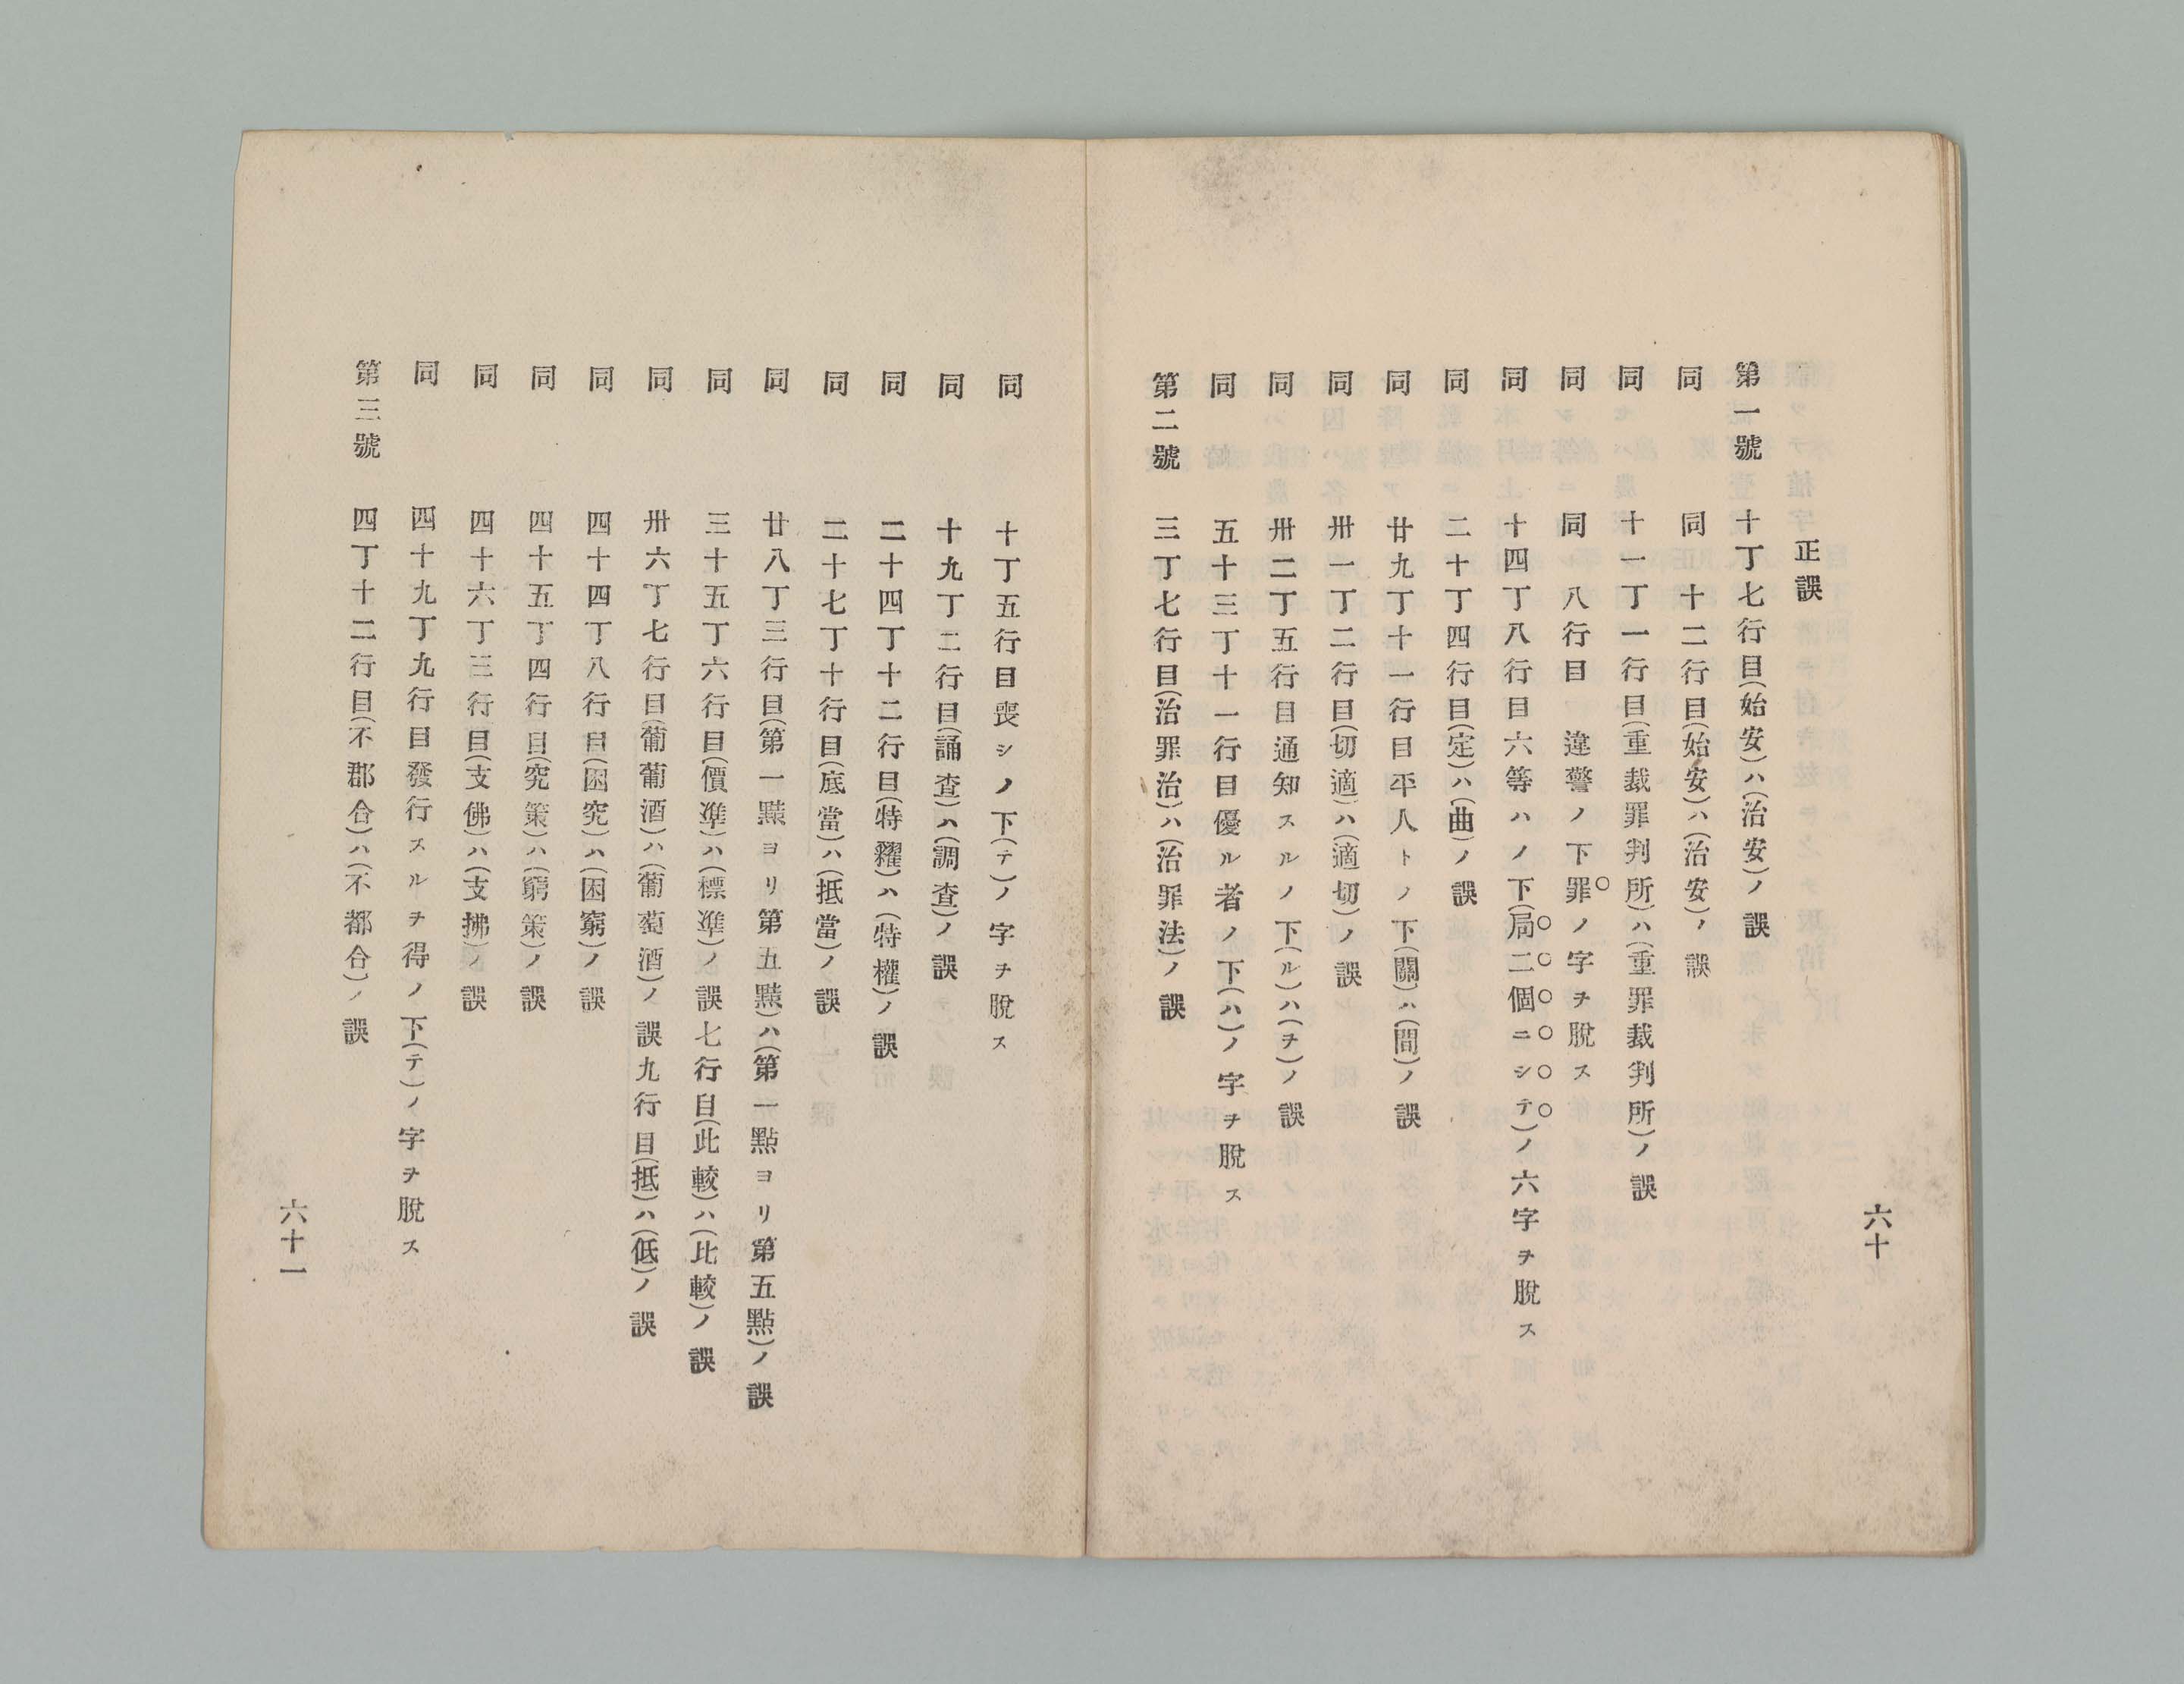 正誤
第一號　十丁七行目(始安)ハ(治安)ノ誤
同　同　十二行目(始安)ハ(治安)ノ誤
同　十一丁一行目(重裁罪判所)ハ(重罪裁判所)ノ誤
同　同　八行目　違警ノ下罪ノ字ヲ脫ス
同　十四丁八行目六等ハノ下(局二個ニシテ)ノ六字ヲ脫ス
同　二十丁四行目(定)ハ(曲)ノ誤
同　廿九丁十一行目平人トノ下(關)ハ(間)ノ誤
同　卅一丁二行目(切適)ハ(適切)ノ誤
同　卅二丁五行目通知スルノ下(ル)ハ(ヲ)ノ誤
同　五十三丁十一行目優ル者ノ下(ハ)ノ字ヲ脫ス
第二號　三丁七行目(治罪治)ハ(治罪法)ノ誤
六十
同　十丁五行目喪シノ下(テ)ノ字ヲ脫ス
同　十九丁二行目(誦査)ハ(調査)ノ誤
同　二十四丁十二行目(特糶)ハ(特權)ノ誤
同　二十七丁十行目(底當)ハ(抵當)ノ誤
同　廿八丁三行目(第一㸃ヨリ第五㸃)ハ(第一點ヨリ第五點)ノ誤
同　三十五丁六行目(價準)ハ(標準)ノ誤七行目(此較)ハ(比較)ノ誤
同　卅六丁七行目(葡葡酒)ハ(葡萄酒)ノ誤九行目(抵)ハ(低)ノ誤
同　四十四丁八行目(困究)ハ(困窮)ノ誤
同　四十五丁四行目(究策)ハ(窮策)ノ誤
同　四十六丁三行目(支佛)ハ(支拂)ノ誤
同　四十九丁九行目發行スルヲ得ノ下(テ)ノ字ヲ脫ス
第三號　四丁十二行目(不郡合)ハ(不都合)ノ誤
六十一